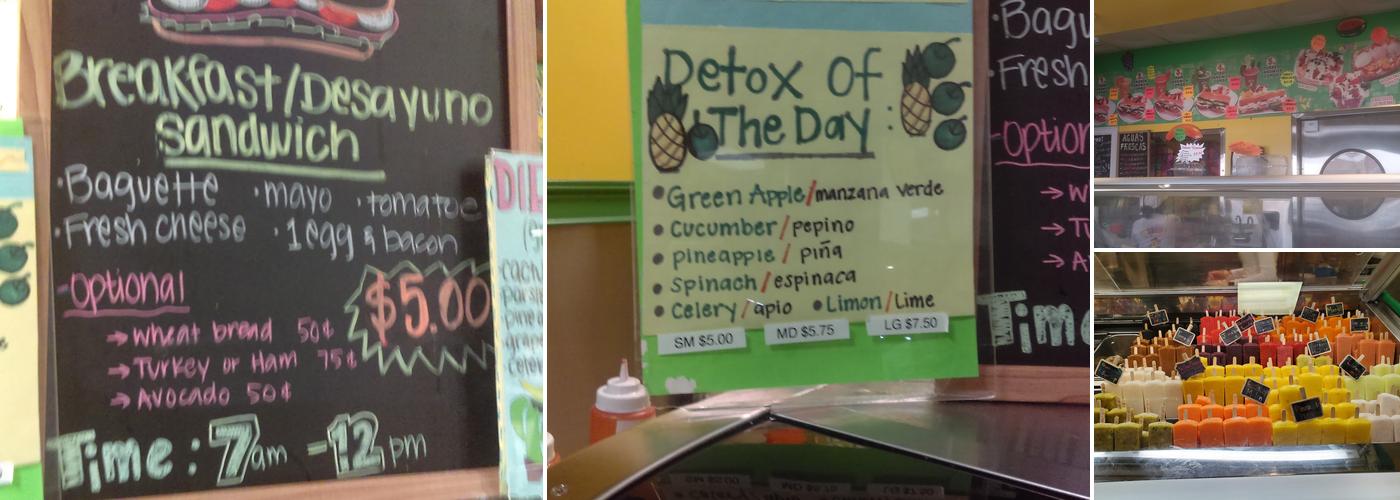 Breakfast/Desayuno
Sandwich
·Baguette ·mayo ·tomatoe
·Fresh cheese ·1egg & bacon
-Optional
$5.00
→ wheat bread 50¢
→ Turkey or Ham 75¢
→ Avocado 50¢
Time: 7am -12 pm
DIE
Detox Of
The Day:
• Green Apple/manzana verde
• Cucumber/pepino
• pineapple/ piña
• Spinach/espinaca
• Celery/apio • Limon/Lime
SM $5.00 MD $5.75 LG $7.50
Bagu
·Fresh
-Option
→ W
→ Tu
→ A
Time
AGUAS
FRESCAS